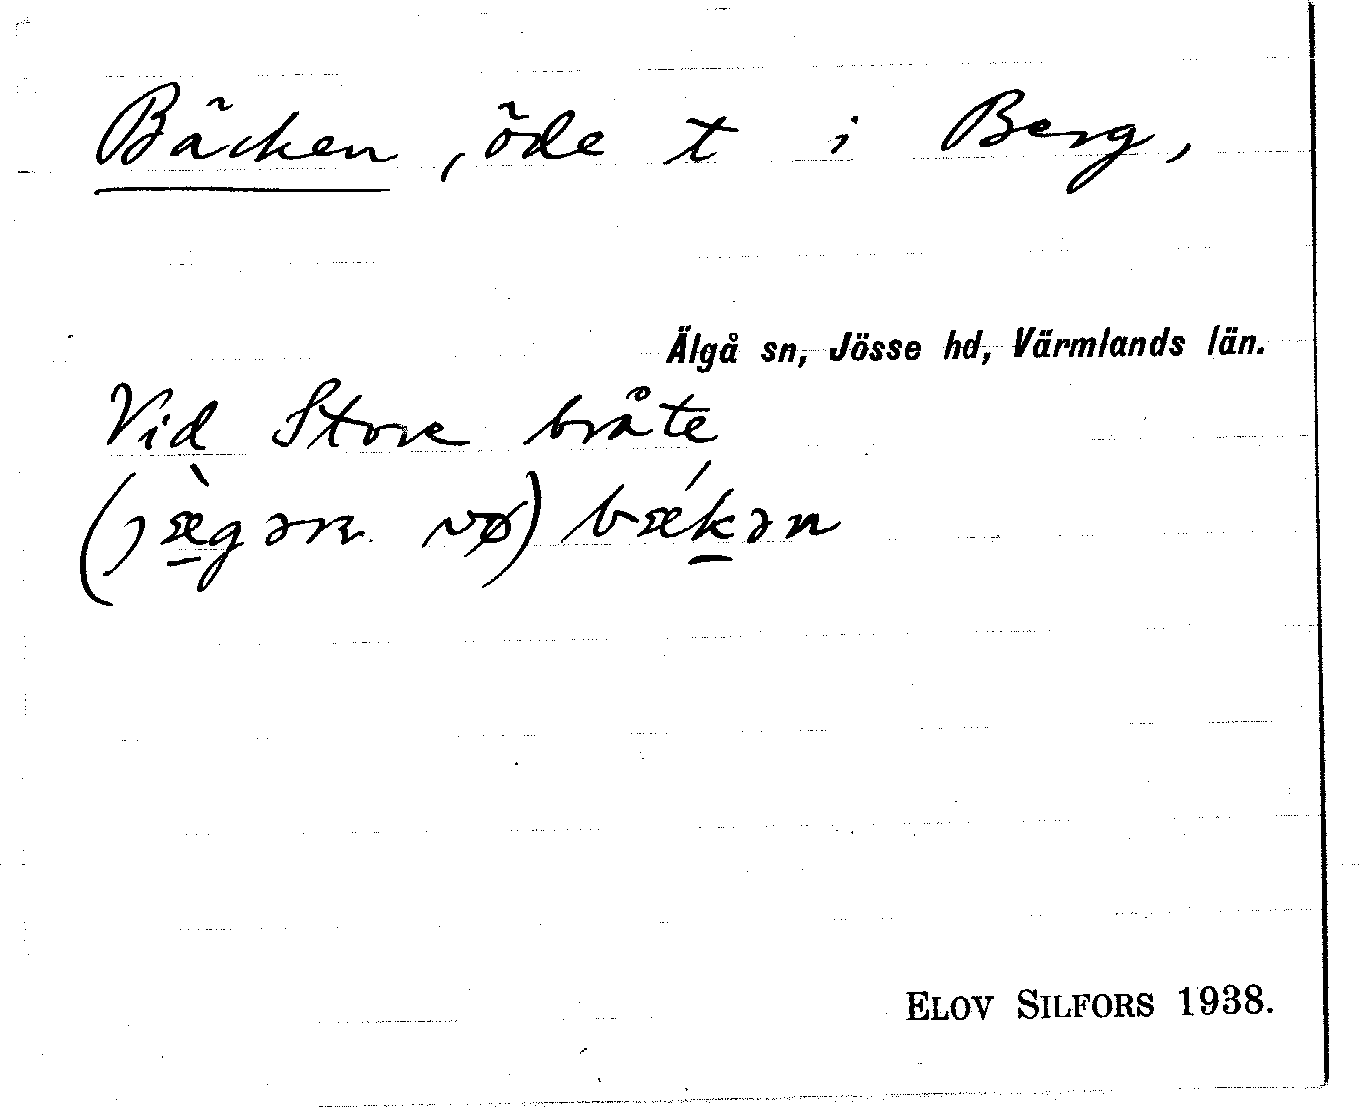 Bäcken, öde t i Berg,
Älgå sn, Jösse hd, Värmlands län.
Vid Store bråte
vø) bǽkən
ELOV SILFORS 1938.